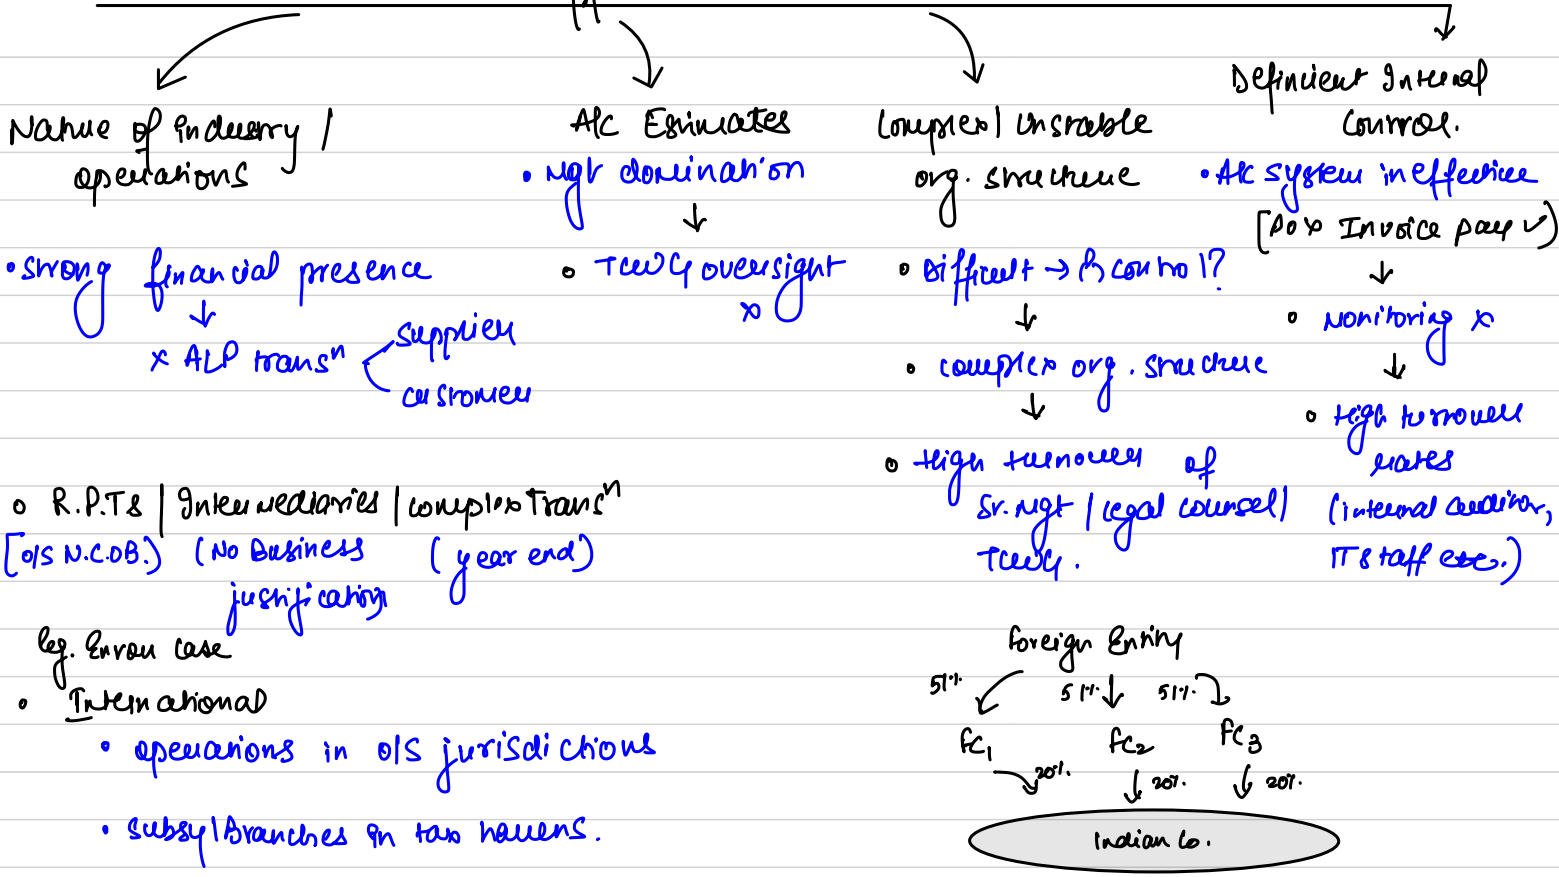 Nature of industry /
operations
• strong financial presence
↓
x ALP transⁿ
supplier
customer
o R.P.TS | Intermediaries | complex Transⁿ
[O/S N.C.OB.) (No Business
justification) (year end)
eg. Enron case
• International
• operations in O/S jurisdictions
• subsy/Branches in tax havens.
A/c Estimates
• Mgt domination
↓
o TCWG oversight
x
Complex/ unstable
org. structure
o Difficult → control?
↓
o complex org. structure
↓
o High turnover of
Sr. Mgt / legal counsel/
TCWG.
Foreign Entity
51% 51% 51%
FC1 FC2 FC3
20% 20% 20%
Indian Co.
Deficient Internal
Control.
• A/c system ineffective
[PO x Invoice pay ✓)
↓
o Monitoring x
↓
o High turnover
rates
(internal auditor,
IT staff etc.)